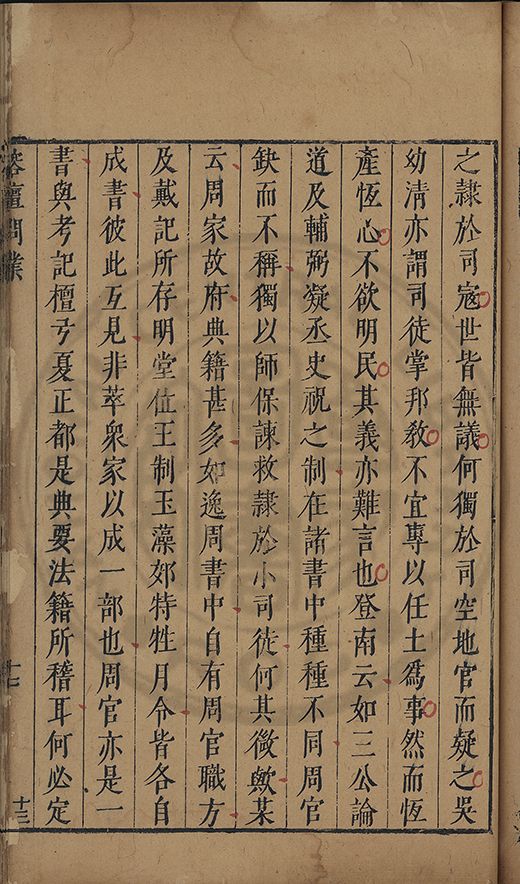 之隸於司寇世皆無議何獨於司空地官而疑之吳
幼清亦謂司徒掌邦教不宜專以任土爲事然而恆
產恆心不欲明民其義亦難言也登南云如三公論
道及輔弼凝丞史祝之制在諸書中種種不同周官
缺而不稱獨以師保諫救隸於小司徒何其微歟某
云周家故府典籍甚多如逸周書中自有周官職方
及戴記所存明堂位王制玉藻郊特牲月令皆各自
成書彼此互見非萃衆家以成一部也周官亦是一
書與考記檀弓夏正都是典要法籍所稽耳何必定
榕壇問業
十七
十三